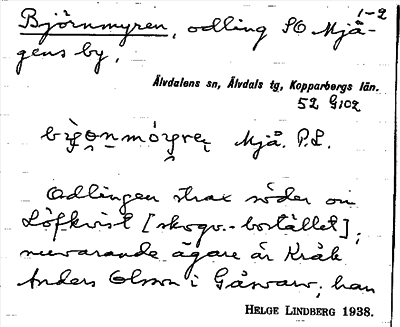 1-2
Björnmyren, odling SO Mjå-
gens by.
Älvdalens sn, Älvdals tg, Kopparbergs län.
52 G102
Mjå. P.L.
Odlingen strax söder om
Löfkvist [skogv.-bostället];
nuvarande ägare är Kråk
Anders Olsson i Gåsvarv, han
HELGE LINDBERG 1938.